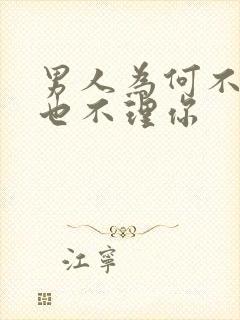 男人為何不
也不理你
江寧